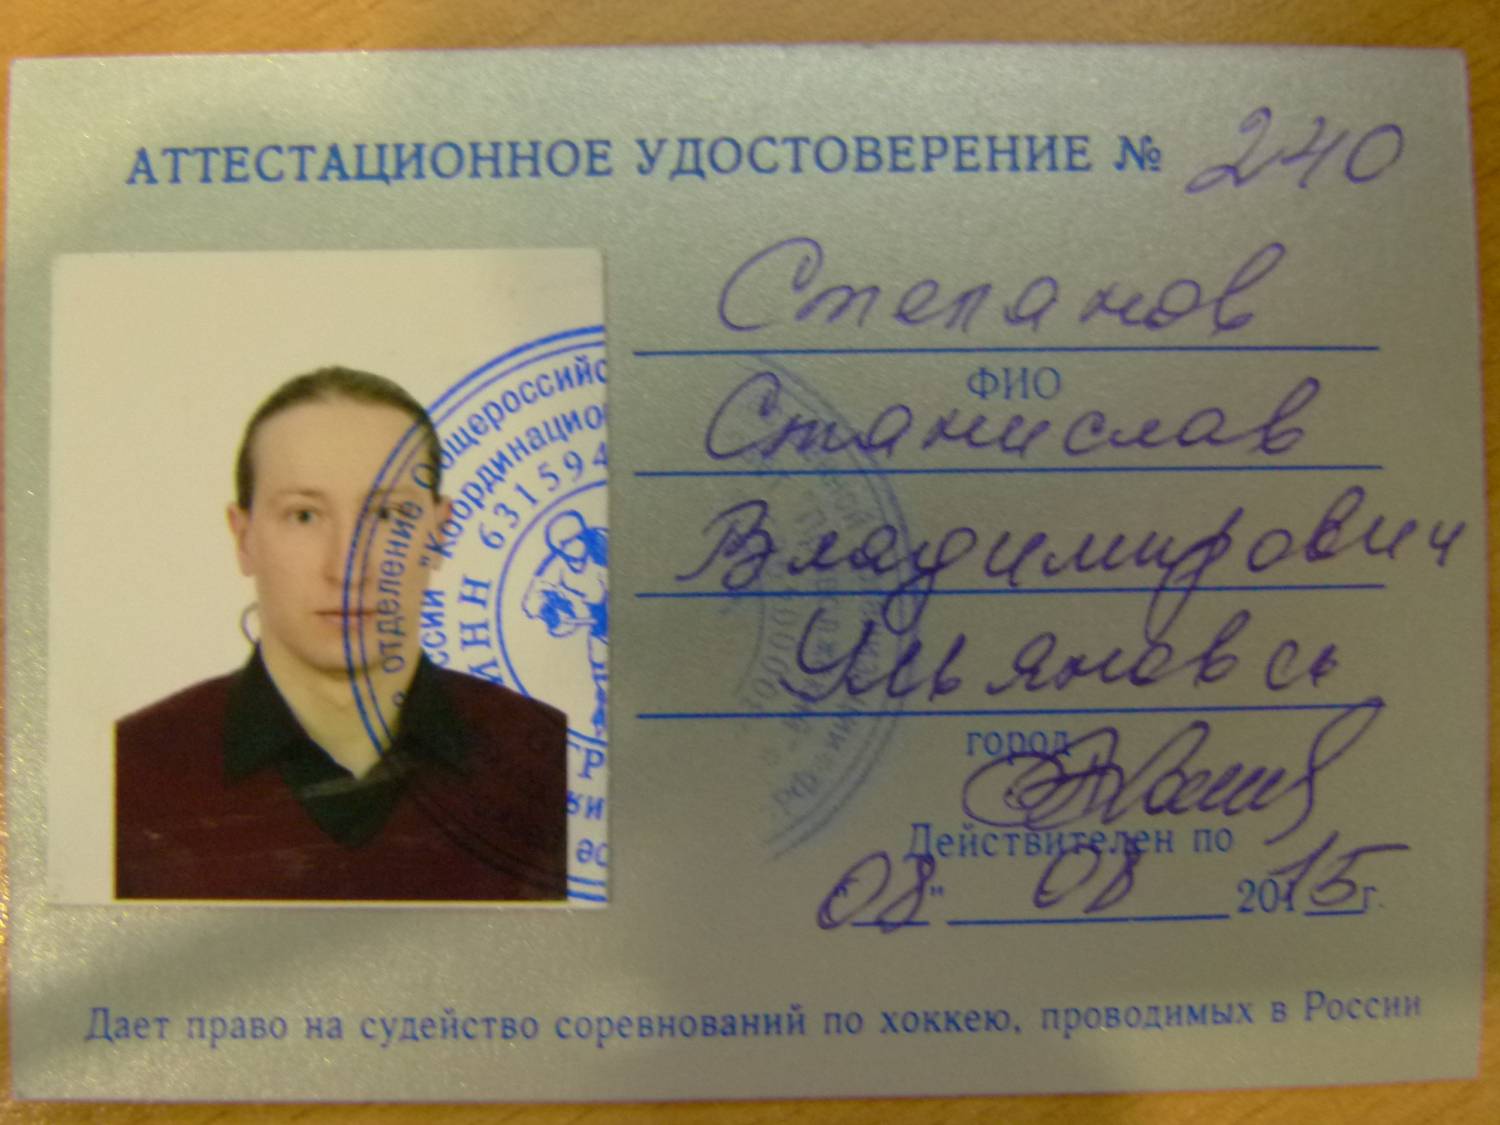 АТТЕСТАЦИОННОЕ УДОСТОВЕРЕНИЕ № 240
Степанов
ФИО
Станислав
Владимирович
Ульяновск
город
Действителен по
"08" 08 2015 г.
Дает право на судейство соревнований по хоккею, проводимых в России
отделение Общероссийс
ссии "Координацион
ИНН 631594